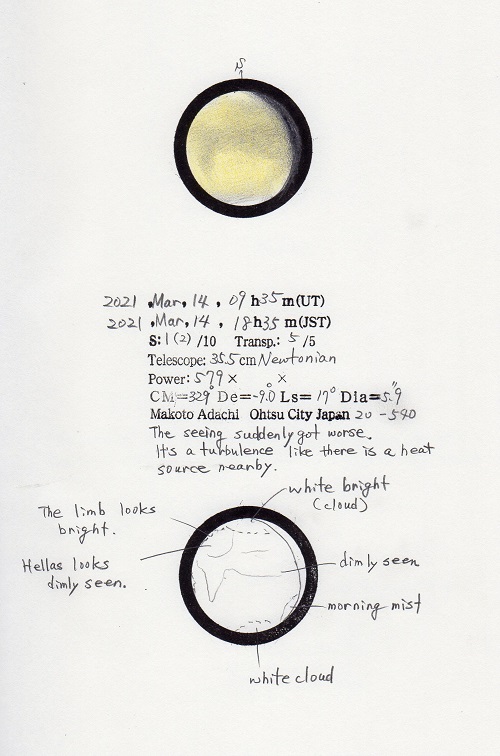 S
2021 , Mar, 14 , 09 h 35 m (UT)
2021 , Mar, 14 , 18 h 35 m (JST)
S: 1 (2) /10 Transp.: 5 /5
Telescope: 35.5 cm Newtonian
Power: 579 × ×
CM=329° De=-9.0° Ls= 17° Dia=5.9"
Makoto Adachi Ohtsu City Japan 20 -540
The seeing suddenly got worse.
It's a turbulence like there is a heat
source nearby.
white bright
(cloud)
The limb looks
bright.
Hellas looks
dimly seen.
dimly seen
morning mist
white cloud